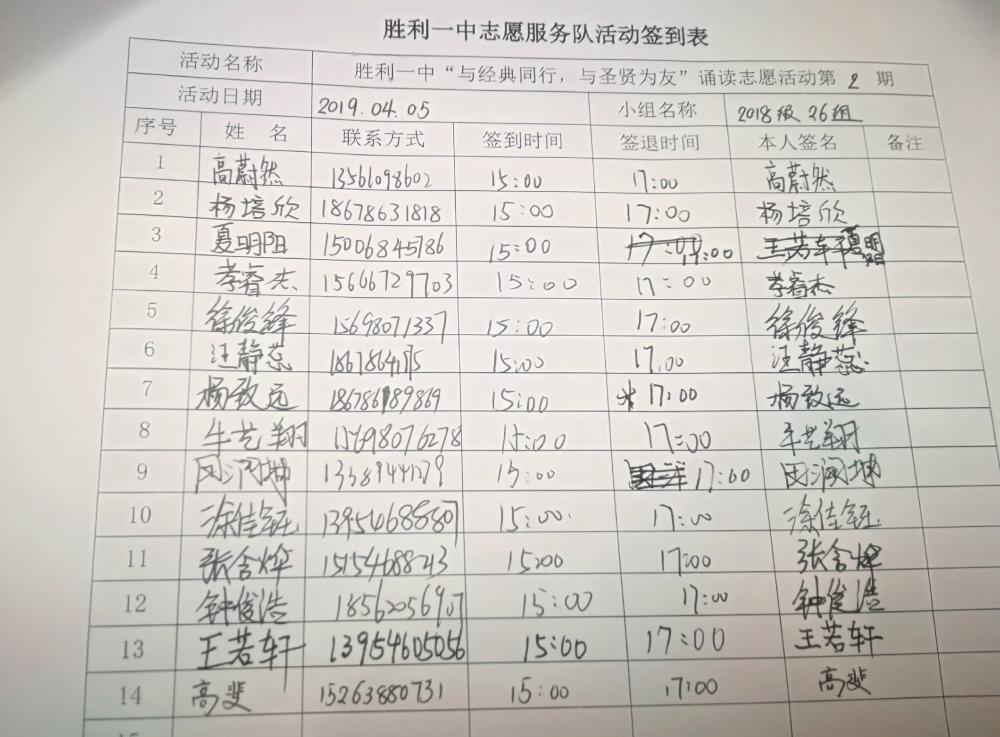 胜利一中志愿服务队活动签到表
活动名称 胜利一中“与经典同行，与圣贤为友”诵读志愿活动第 2 期
活动日期 2019.04.05 小组名称 2018级 26组
序号 姓 名 联系方式 签到时间 签退时间 本人签名 备注
1 高蔚然 13561098602 15:00 17:00 高蔚然
2 杨培欣 18678631818 15:00 17:00 杨培欣
3 夏明阳 15006845786 15:00 17:00 夏明阳
4 李睿杰 15666729703 15:00 17:00 李睿杰
5 徐俊锋 15698071337 15:00 17:00 徐俊锋
6 汪静蕊 15:00 17:00 汪静蕊
7 杨致远 18678689869 15:00 17:00 杨致远
8 牛艺翔 15698076278 15:00 17:00 牛艺翔
9 田润坤 15:00 17:00 田润坤
10 涂佳钰 13954688807 15:00 17:00 涂佳钰
11 张含烨 15154688243 15:00 17:00 张含烨
12 钟俊浩 18562056907 15:00 17:00 钟俊浩
13 王若轩 13954605056 15:00 17:00 王若轩
14 高斐 15263880731 15:00 17:00 高斐